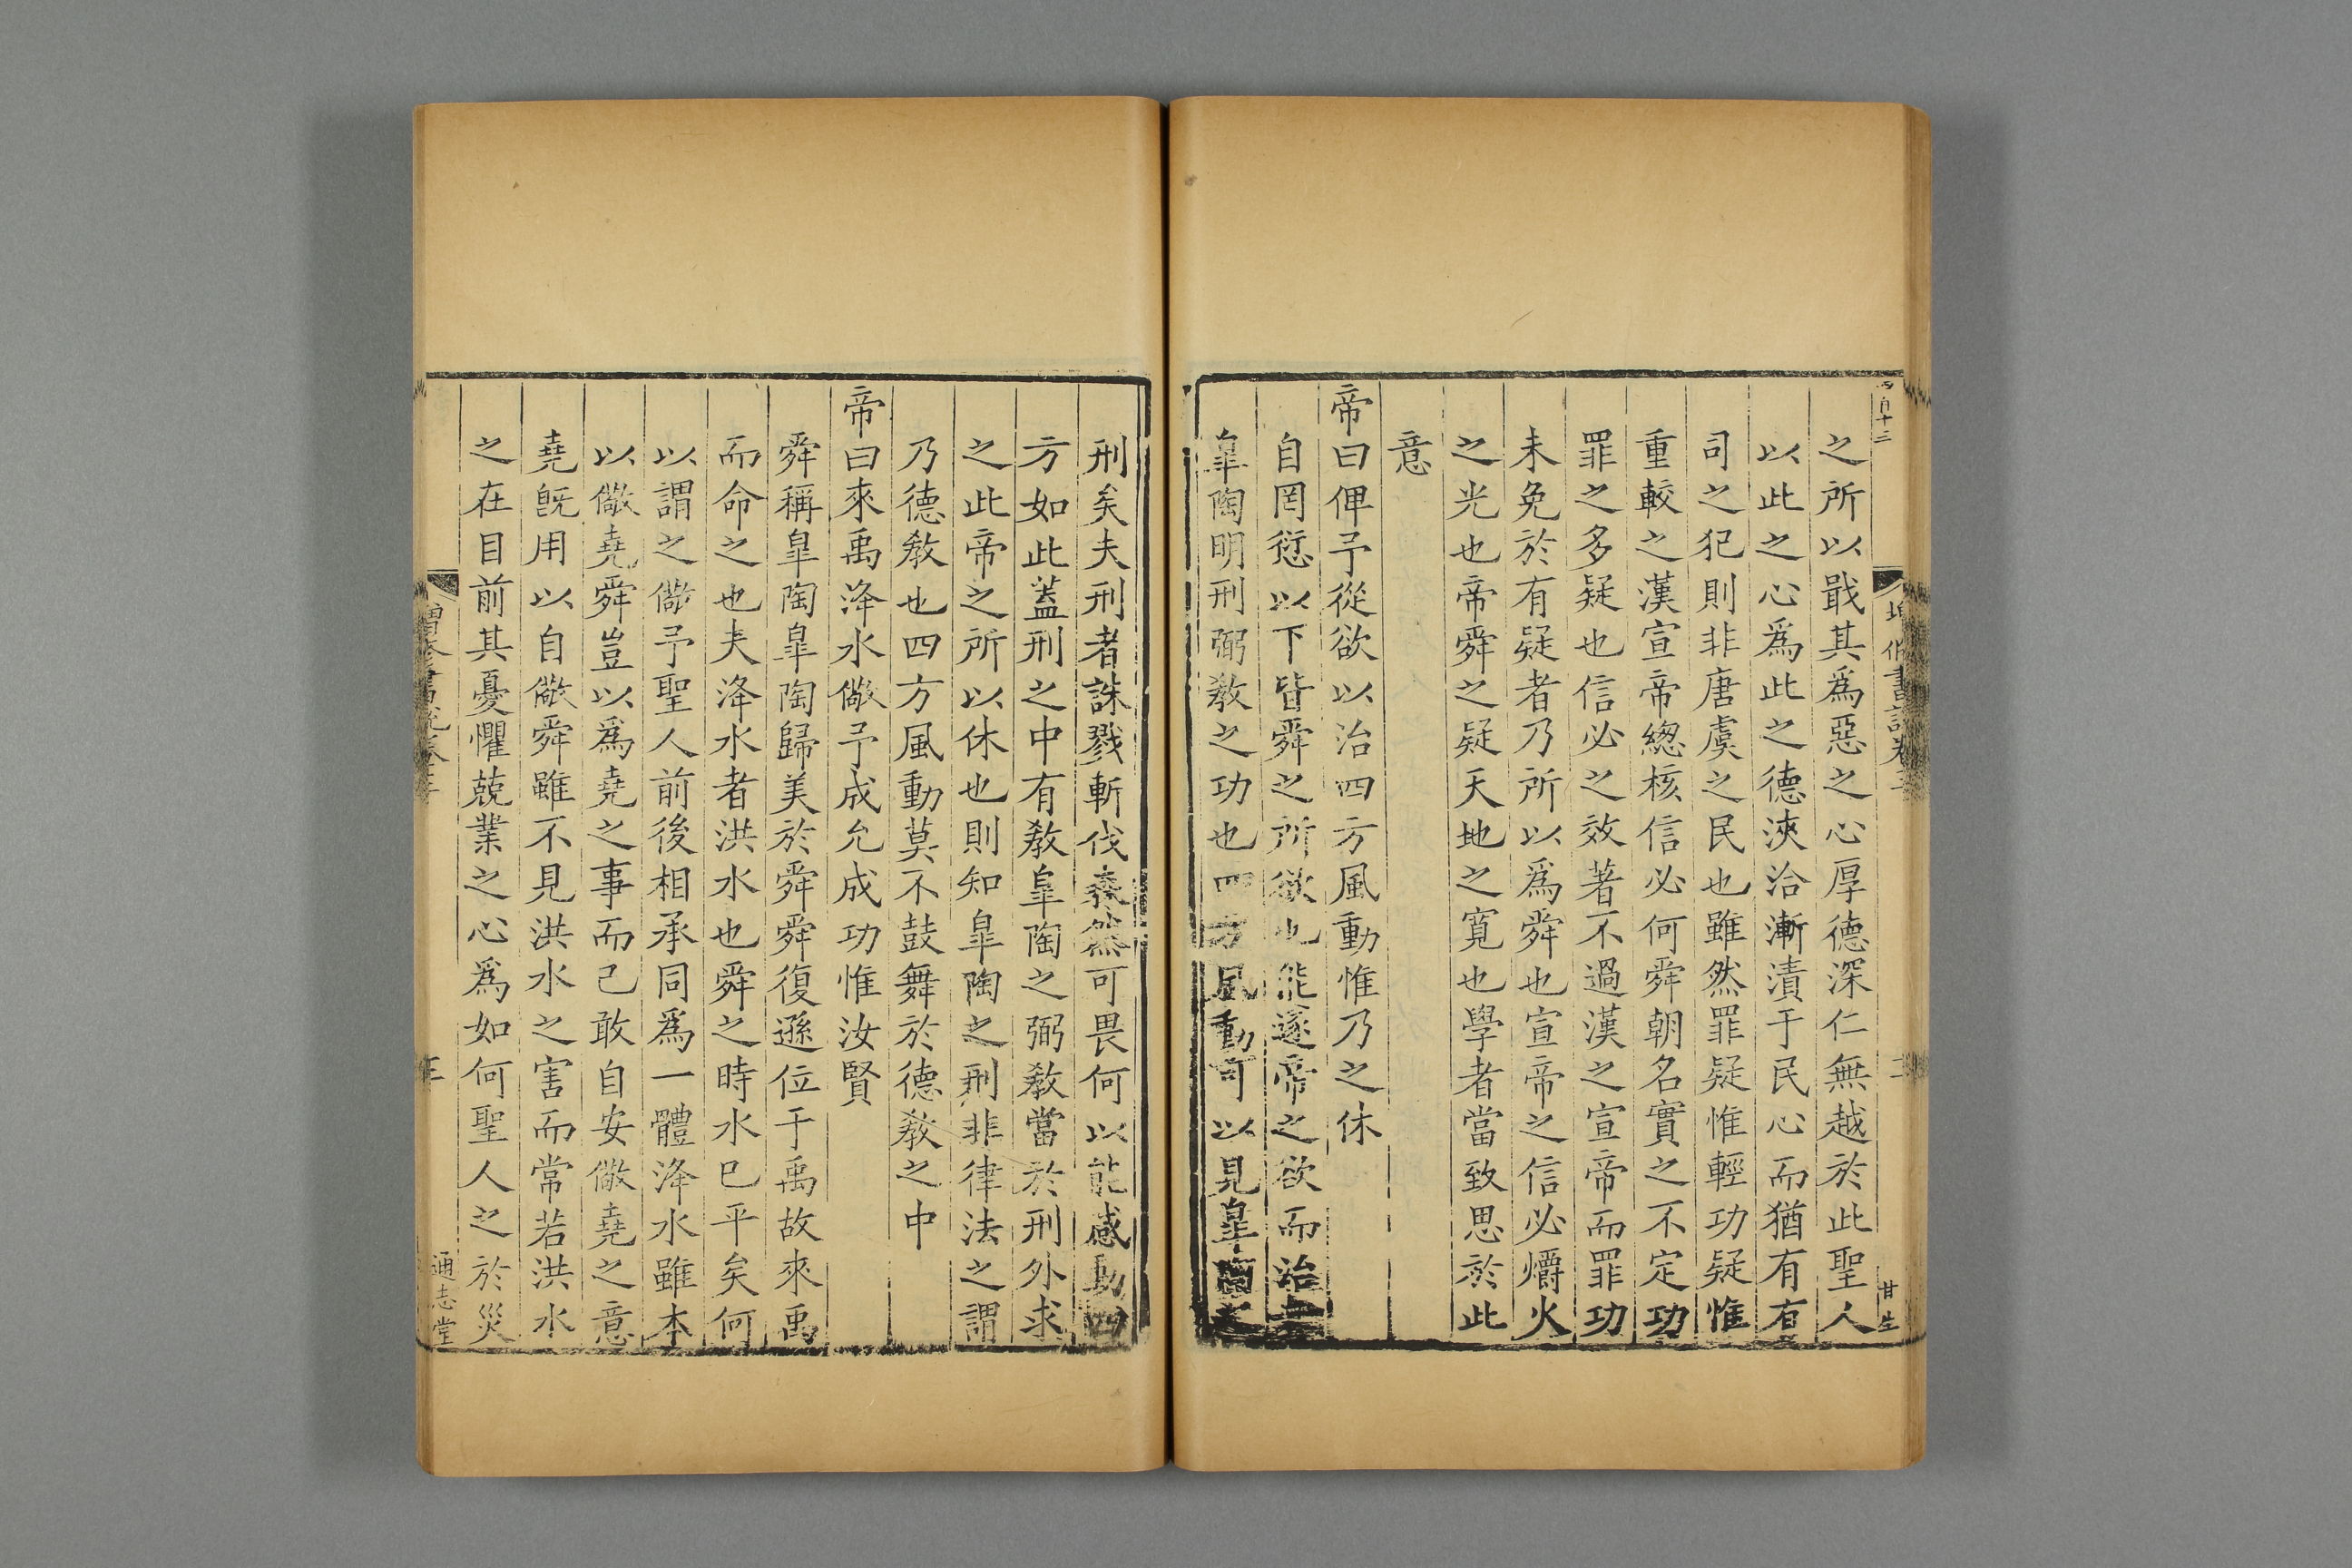 之所以戕其爲惡之心厚德深仁無越於此聖人
以此之心爲此之德浹洽漸漬于民心而猶有有
司之犯則非唐虞之民也雖然罪疑惟輕功疑惟
重較之漢宣帝緫核信必何舜朝名實之不定功
罪之多疑也信必之效著不過漢之宣帝而罪功
未免於有疑者乃所以爲舜也宣帝之信必爝火
之光也帝舜之疑天地之寛也學者當致思於此
意
帝曰俾予從欲以治四方風動惟乃之休
自罔愆以下皆舜之所欲也能遂帝之欲而治
皐陶明刑弼敎之功也四方風動可以見皐陶之
刑矣夫刑者誅戮斬伐森然可畏何以能感動四
方如此蓋刑之中有敎皐陶之弼敎當於刑外求
之此帝之所以休也則知皐陶之刑非律法之謂
乃德敎也四方風動莫不鼓舞於德敎之中
帝曰來禹洚水儆予成允成功惟汝賢
舜稱皐陶皐陶歸美於舜舜復遜位于禹故來禹
而命之也夫洚水者洪水也舜之時水巳平矣何
以謂之儆予聖人前後相承同爲一體洚水雖本
以儆堯舜豈以爲堯之事而己敢自安儆堯之意
堯旣用以自儆舜雖不見洪水之害而常若洪水
之在目前其憂懼兢業之心爲如何聖人之於災
通志堂